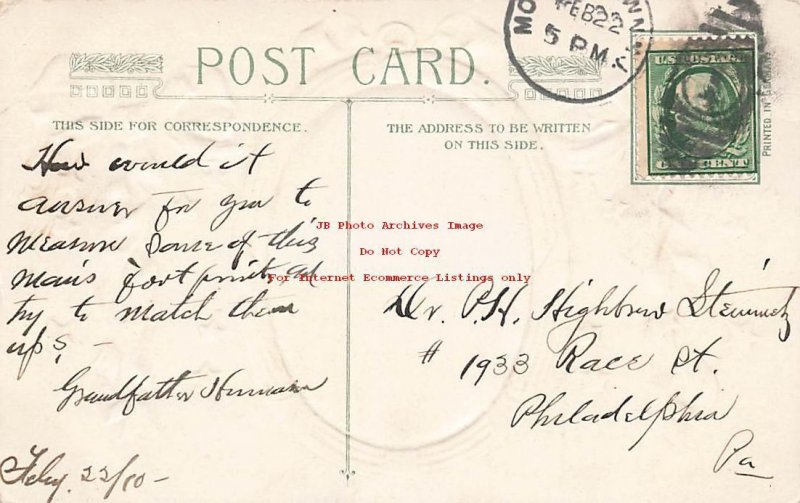 POST CARD.
THIS SIDE FOR CORRESPONDENCE.
THE ADDRESS TO BE WRITTEN
ON THIS SIDE.
FEB 22
5 PM
U.S. POSTAGE
CENT
PRINTED IN
How would it
answer for you to
measure some of this
man's footprints and
try to match them
up? -
Grandfather
Feby. 22/10 -
Dr. P.H. Highbrow Steinmetz
# 1933 Race St.
Philadelphia
Pa
JB Photo Archives Image
Do Not Copy
For Internet Ecommerce Listings only